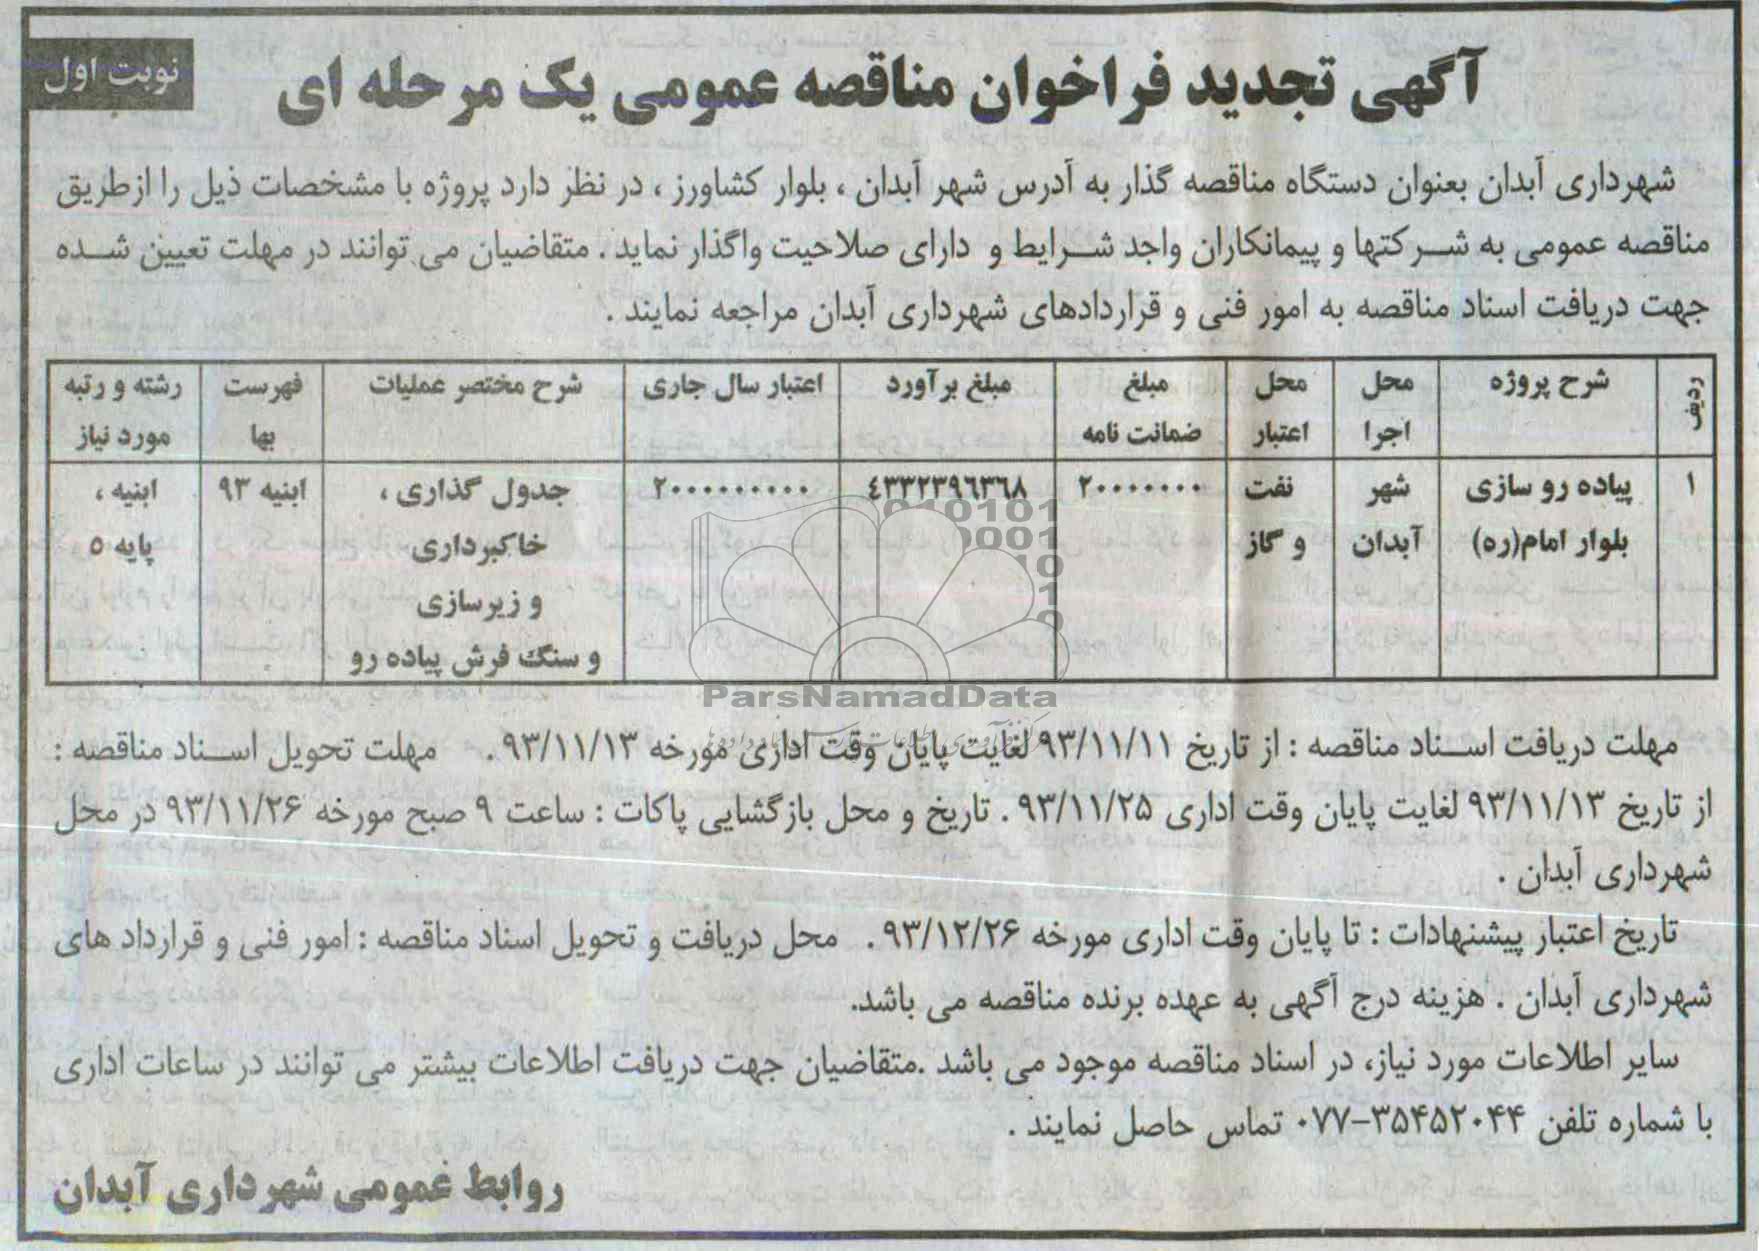 نوبت اول
آگهی تجدید فراخوان مناقصه عمومی یک مرحله ای
شهرداری آبدان بعنوان دستگاه مناقصه گذار به آدرس شهر آبدان ، بلوار کشاورز ، در نظر دارد پروژه با مشخصات ذیل را ازطریق
مناقصه عمومی به شرکتها و پیمانکاران واجد شرایط و دارای صلاحیت واگذار نماید . متقاضیان می توانند در مهلت تعیین شده
جهت دریافت اسناد مناقصه به امور فنی و قراردادهای شهرداری آبدان مراجعه نمایند .
ردیف | شرح پروژه | محل اجرا | محل اعتبار | مبلغ ضمانت نامه | مبلغ برآورد | اعتبار سال جاری | شرح مختصر عملیات | فهرست بها | رشته و رتبه مورد نیاز
۱ | پیاده رو سازی بلوار امام(ره) | شهر آبدان | نفت و گاز | ۲۰۰۰۰۰۰۰ | ٤۳۳۲۳۹٦۳٦۸ | ۲۰۰۰۰۰۰۰۰۰۰ | جدول گذاری ، خاکبرداری و زیرسازی و سنگ فرش پیاده رو | ابنیه ۹۳ | ابنیه ، پایه ۵
ParsNamadData
مهلت دریافت اسناد مناقصه : از تاریخ ۹۳/۱۱/۱۱ لغایت پایان وقت اداری مورخه ۹۳/۱۱/۱۳ . مهلت تحویل اسناد مناقصه :
از تاریخ ۹۳/۱۱/۱۳ لغایت پایان وقت اداری ۹۳/۱۱/۲۵ . تاریخ و محل بازگشایی پاکات : ساعت ۹ صبح مورخه ۹۳/۱۱/۲۶ در محل
شهرداری آبدان .
تاریخ اعتبار پیشنهادات : تا پایان وقت اداری مورخه ۹۳/۱۲/۲۶ . محل دریافت و تحویل اسناد مناقصه : امور فنی و قرارداد های
شهرداری آبدان . هزینه درج آگهی به عهده برنده مناقصه می باشد.
سایر اطلاعات مورد نیاز، در اسناد مناقصه موجود می باشد .متقاضیان جهت دریافت اطلاعات بیشتر می توانند در ساعات اداری
با شماره تلفن ۳۵۴۵۲۰۴۴-۰۷۷ تماس حاصل نمایند .
روابط عمومی شهرداری آبدان